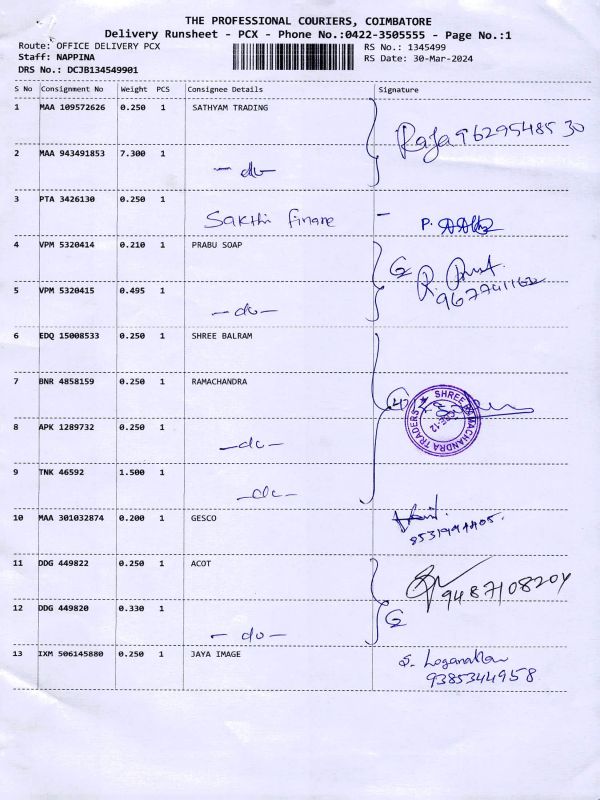 THE PROFESSIONAL COURIERS, COIMBATORE
Delivery Runsheet - PCX - Phone No.:0422-3505555 - Page No.:1
Route: OFFICE DELIVERY PCX RS No.: 1345499
Staff: NAPPINA RS Date: 30-Mar-2024
DRS No.: DCJB134549901
S No Consignment No Weight PCS Consignee Details Signature
1 MAA 109572626 0.250 1 SATHYAM TRADING
Raja 9629548530
2 MAA 943491853 7.300 1
- do -
3 PTA 3426130 0.250 1
Sakthi finane - P.
4 VPM 5320414 0.210 1 PRABU SOAP
2 R.
5 VPM 5320415 0.495 1 967741162
- do -
6 EDQ 15008533 0.250 1 SHREE BALRAM
7 BNR 4858159 0.250 1 RAMACHANDRA
4 SHREE RAMACHANDRA TRADERS
8 APK 1289732 0.250 1
- do -
9 TNK 46592 1.500 1
- do -
10 MAA 301032874 0.200 1 GESCO
11 DDG 449822 0.250 1 ACOT
9487108204
12 DDG 449820 0.330 1 2
- do -
13 IXM 506145880 0.250 1 JAYA IMAGE S. Loganathan
9385344958